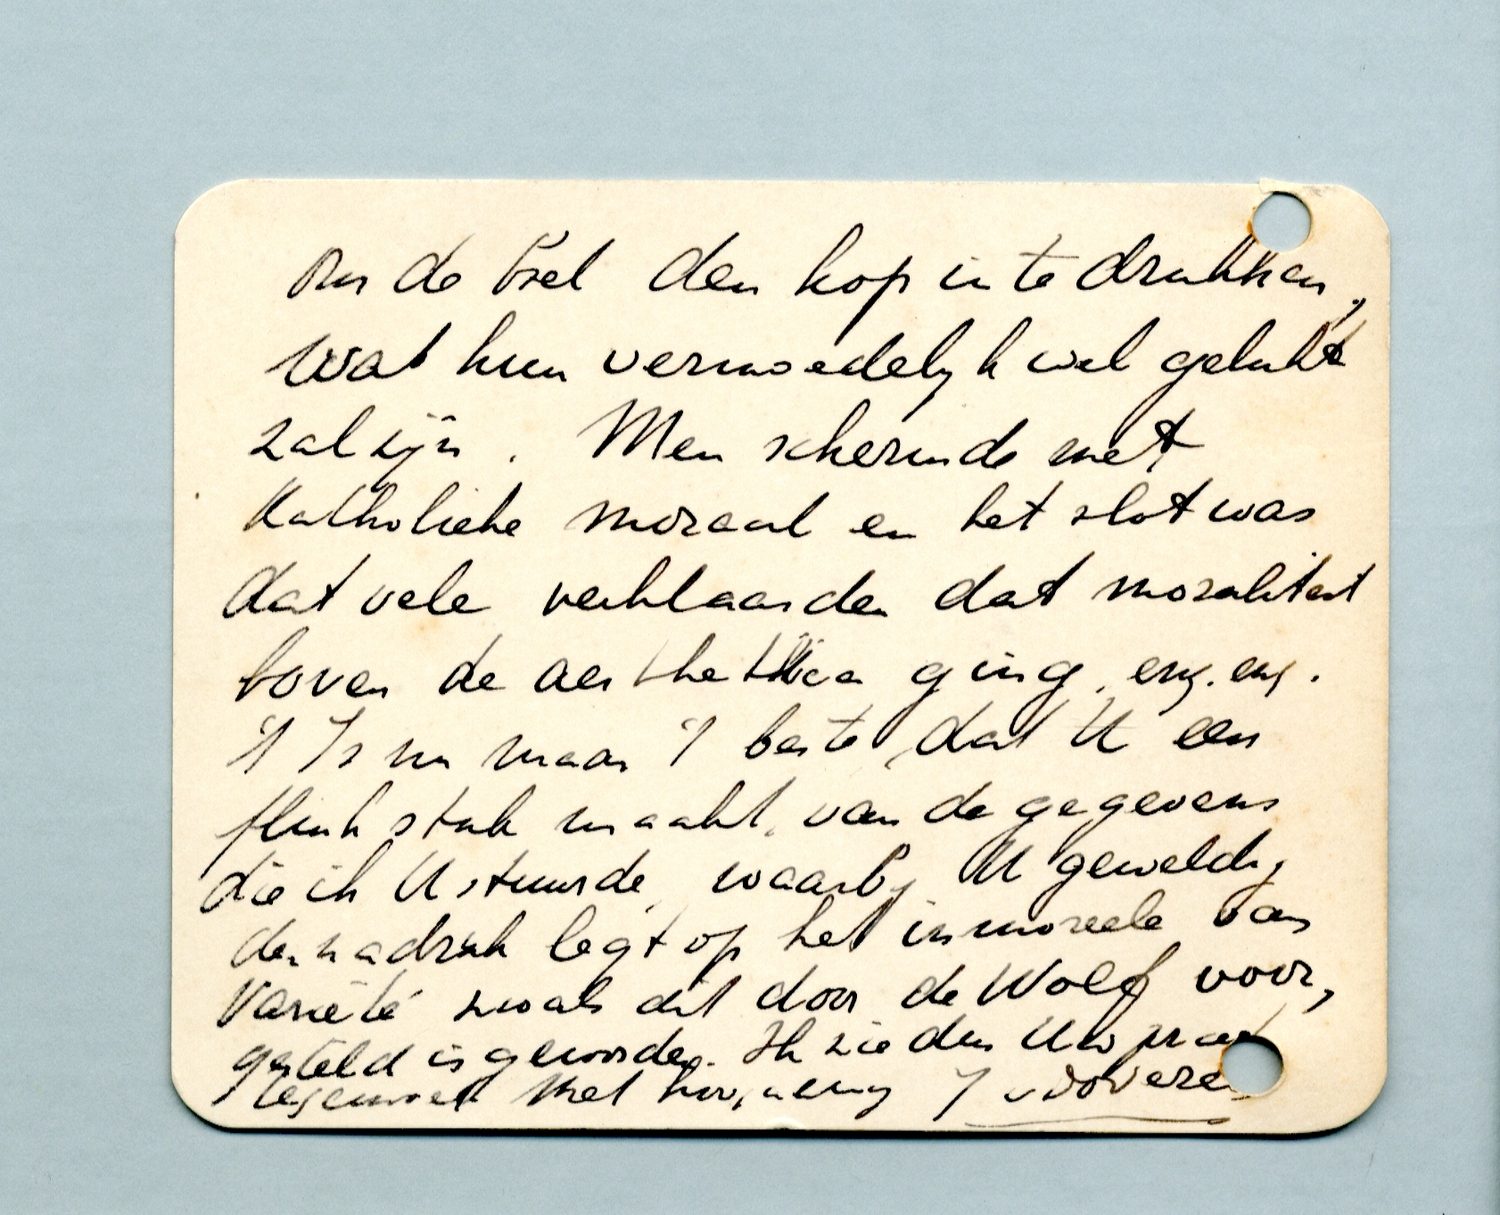 om de Ezel den kop in te drukken,
wat hun vermoedelijk wel gelukt
zal zijn. Men schermde met
Katholieke moraal en het slot was
dat vele verklaarden dat moraliteit
boven de aesthetica ging, enz. enz.
't Is nu maar 't beste, dat U een
flink stuk maakt, van de gegevens
die ik U stuurde, waarbij U geweldig
den nadruk legt op het immoreele van
Variété zooals dit door de Wolf voor,
gesteld is geworden. Ik zie dus Uw
tegemoet. Met hoogachting J